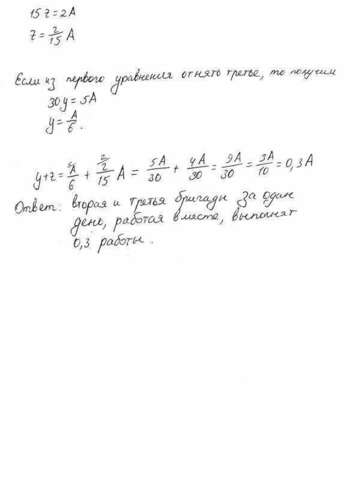 15z=2A
z=2/15 A
Если из первого уравнения отнять третье, то получим
30y=5A
y=A/6.
y+z=⁵A/6 + ²2/15 A = 5A/30 + 4A/30 = 9A/30 = 3A/10 = 0,3A
Ответ: вторая и третья бригады за один
день, работая вместе, выполнят
0,3 работы.